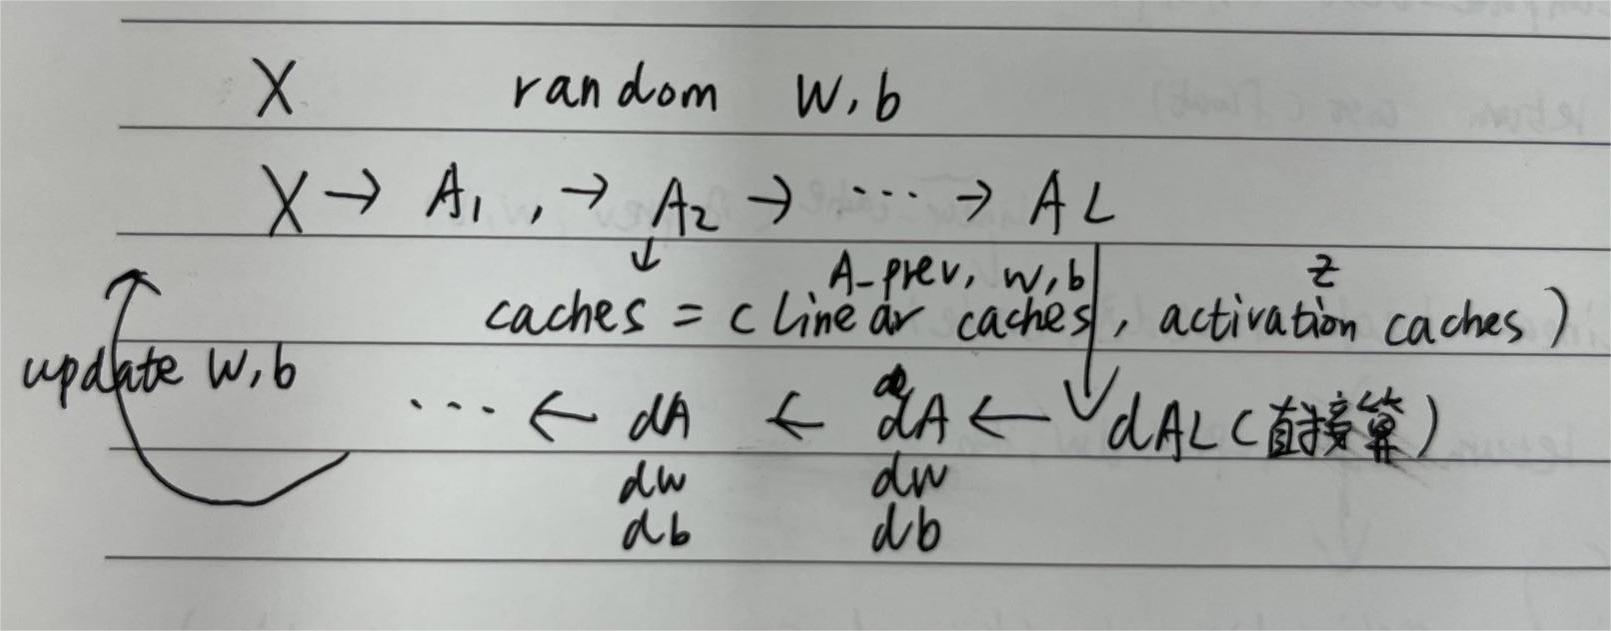 X random W, b
X → A1, → A2 → ... → AL
↓ A-prev, w, b z
caches = (linear caches, activation caches)
update W, b
... ← dA ← dA ← dAL (直接算)
dw dw
db db